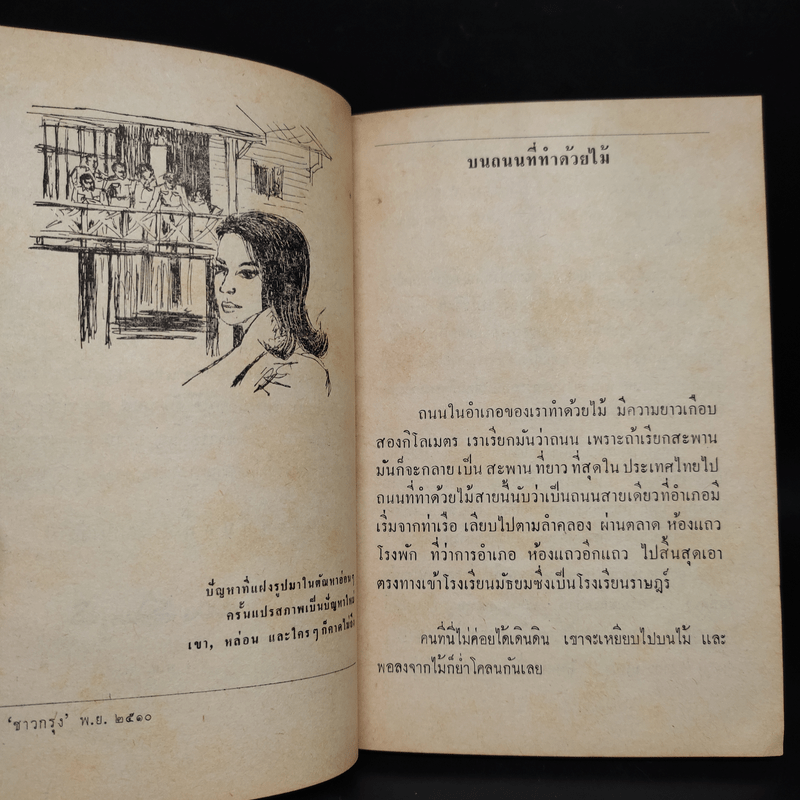 ปัญหาที่แฝงรูปมาในตัณหาอ่อนๆ
ครั้นแปรสภาพเป็นปัญหาใหม่
เขา, หล่อน และใครๆ ก็คาดไม่ถึง
'ชาวกรุง' พ.ย. ๒๕๑๐
บนถนนที่ทำด้วยไม้
ถนนในอำเภอของเราทำด้วยไม้ มีความยาวเกือบ
สองกิโลเมตร เราเรียกมันว่าถนน เพราะถ้าเรียกสะพาน
มันก็จะกลาย เป็น สะพาน ที่ยาว ที่สุดใน ประเทศไทยไป
ถนนที่ทำด้วยไม้สายนี้นับว่าเป็นถนนสายเดียวที่อำเภอมี
เริ่มจากท่าเรือ เลียบไปตามลำคลอง ผ่านตลาด ห้องแถว
โรงพัก ที่ว่าการอำเภอ ห้องแถวอีกแถว ไปสิ้นสุดเอา
ตรงทางเข้าโรงเรียนมัธยมซึ่งเป็นโรงเรียนราษฎร์
คนที่นี่ไม่ค่อยได้เดินดิน เขาจะเหยียบไปบนไม้ และ
พอลงจากไม้ก็ย่ำโคลนกันเลย